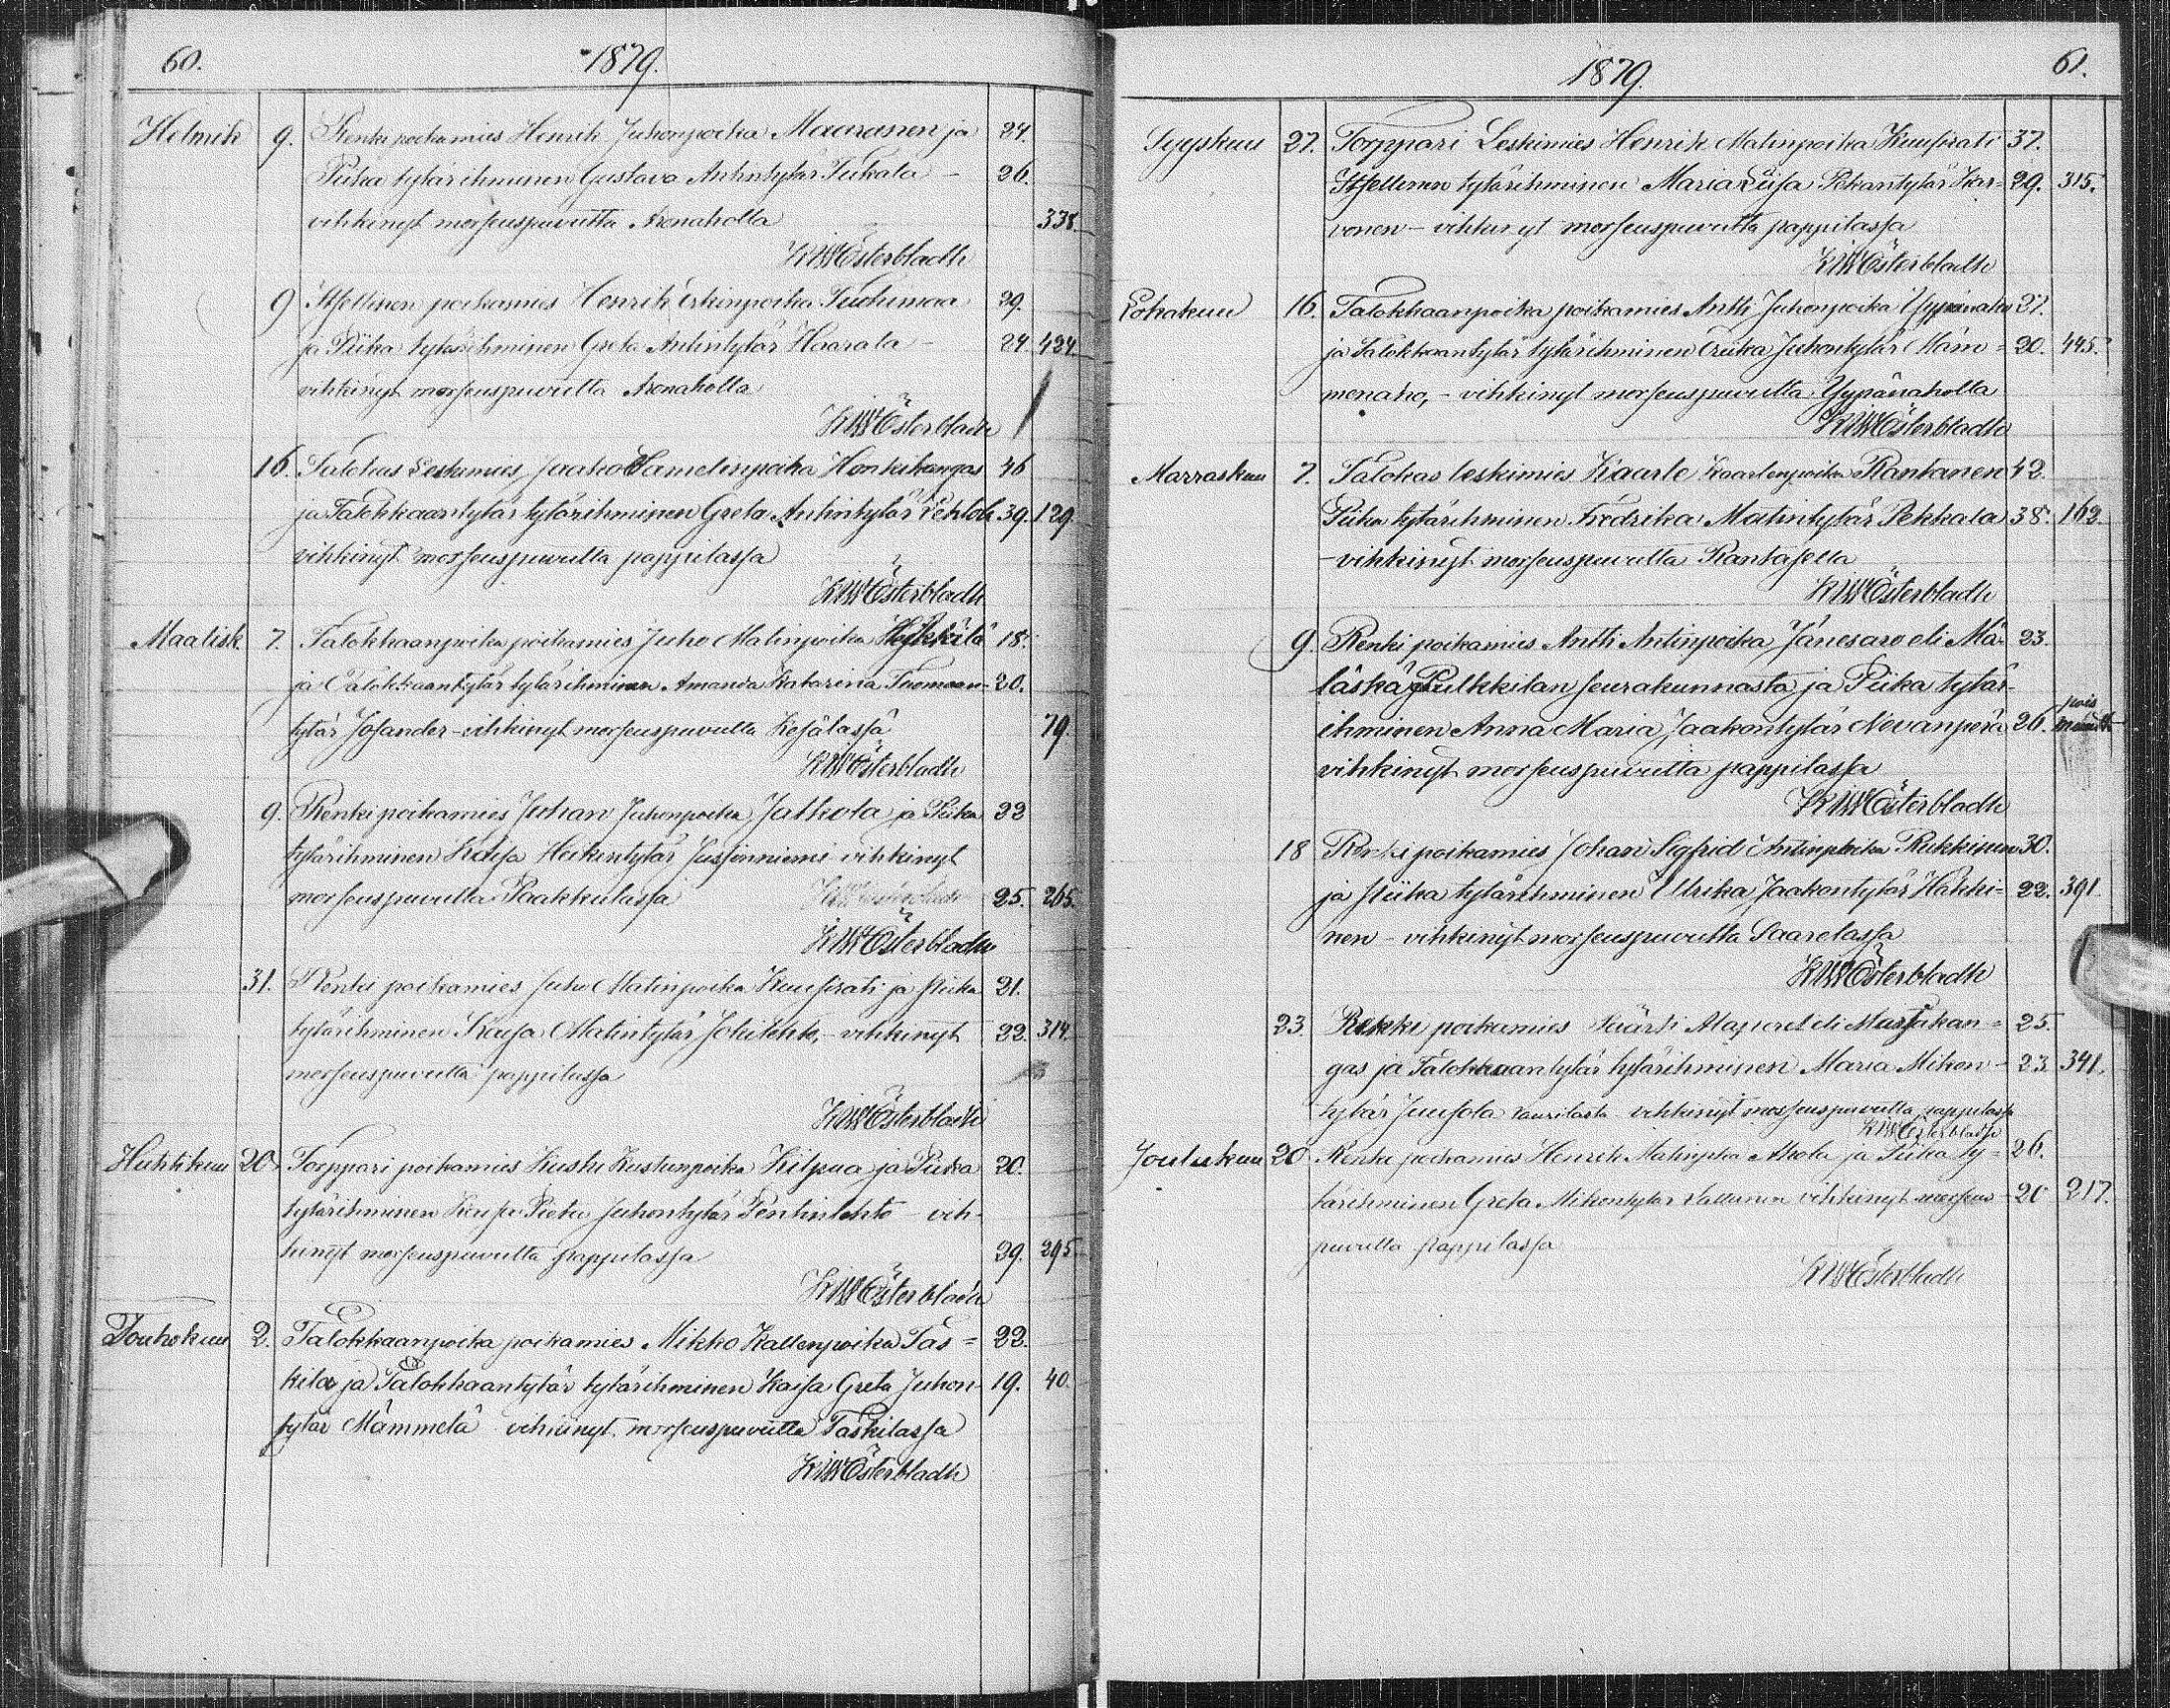 60. 1879.
Helmik 9. Renki poikamies Henrik Juhonpoika Maaranen ja 24.
Piika tytärihminen Gustava Antintytär Tiikala - 26.
vihkinyt morseuspuvutta Aronaholla 338.
KWÖsterbladh
9 Itsellinen poikamies Henrik Erkinpoika Tuohimaa 29.
ja Piika tytärihminen Greta Antintytär Haarala - 24 424
vihkinyt morseuspuvutta Aronaholla
KWÖsterbladh
16. Talokas Leskimies Jaako Samelinpoika Honkikangas 46
ja Talokkaantytär tytärihminen Greta Antintytär Lehtola 39. 129.
vihkinyt morseuspuvutta pappilassa
KWÖsterbladh
Maalisk. 7. Talokkaanpoika poikamies Juho Matinpoika Höykkilä 18.
ja Talokkaantytär tytärihminen Amanda Katarina Tuomaan= 20.
tytär Josander - vihkinyt morseuspuvutta Kesälassä 79.
KWÖsterbladh
9. Renki poikamies Juhan Juhonpoika Jatkola ja Piika 22
tytärihminen Kaisa Heikintytär Jussinniemi vihkinyt
morseuspuvutta Paakkulassa 25. 265.
KWÖsterbladh
31. Renki poikamies Juho Matinpoika Kuusirati ja piika 21.
tytärihminen Kaisa Matintytär Jokilehto, - vihkinyt 22. 314.
morseuspuvutta pappilassa
KWÖsterbladh
Huhtikuu 20 Torppari poikamies Kusku Kustunpoika Kilpua ja Piika 20.
tytärihminen Kaisa Juhontytär Pentinlehto - vih-
kinyt morseuspuvutta pappilassa 29. 295.
KWÖsterbladh
Toukokuu 2. Talokkaanpoika poikamies Mikko Kallenpoika Täs= 22.
kila ja Talokkaantytär tytärihminen Kaisa Greta Juhon- 19. 40.
tytär Mämmelä vihkinyt morseuspuvutta Täskilassa
KWÖsterbladh
1879. 61.
Syyskuu 27. Torppari Leskimies Henrik Matinpoika Kuusirati 37.
Itsellinen tytärihminen Maria Liisa Pekantytär Kar= 29. 315.
vonen - vihkinyt morseuspuvutta pappilassa
KWÖsterbladh
Lokakuu 16. Talokkaanpoika poikamies Antti Juhonpoika Yypänaho 27.
ja Talokkaantytär tytärihminen Eriika Juhontytär Mäm= 20. 445.
menaho, - vihkinyt morseuspuvutta Yypänaholla
KWÖsterbladh
Marraskuu 7. Talokas leskimies Kaarle Kaarlenpoika Rantanen 42.
Piika tytärihminen Fredrika Matintytär Pekkala 38. 162.
- vihkinyt morseuspuvutta Rantasella
KWÖsterbladh
9. Renki poikamies Antti Antinpoika Jänesaro eli Mä- 23.
läskä Pulkkilan seurakunnasta ja Piika tytär-
ihminen Anna Maria Jaakontytär Nevanperä 26. pois
vihkinyt morseuspuvutta pappilassa
KWÖsterbladh
18 Renki poikamies Johan Sigfrid Antinpoika Rukkinen 30.
ja piika tytärihminen Ulrika Jaakontytär Häkki= 22. 391
nen - vihkinyt morseuspuvutta Saarelassa
KWÖsterbladh
23. Renki poikamies Alaperet eli Mustakan= 25.
gas ja Talokkaantytär tytärihminen Maria Mikon- 23 341.
tytär Juusola vihkinyt morseuspuvutta pappilassa
KWÖsterbladh
Joulukuu 20 Renki poikamies Henrik Matinpoika Ahola ja Piika ty= 26.
tärihminen Greta Mikontytär vihkinyt morseus- 20 217.
puvutta pappilassa
KWÖsterbladh